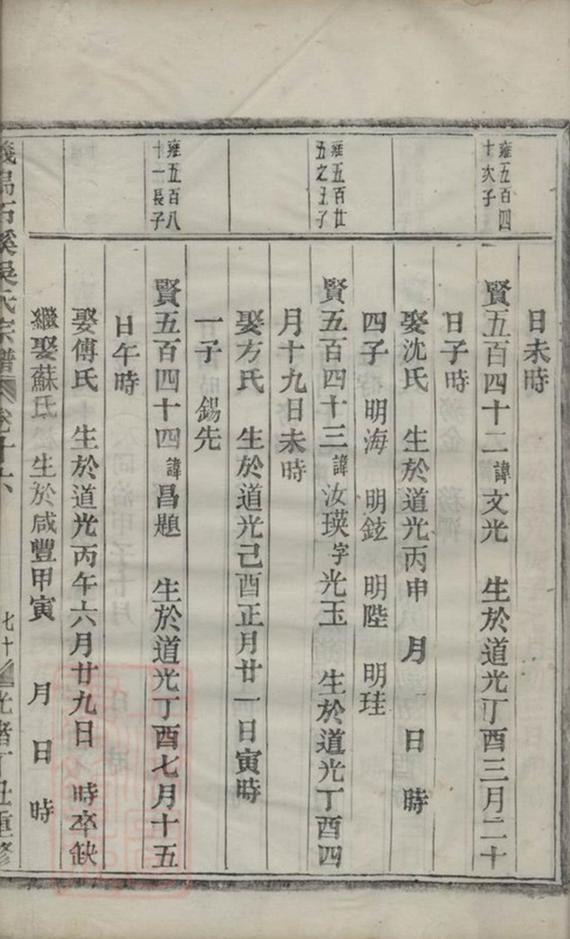 日未時
雍五百四
十次子
賢五百四十二諱文光　生於道光丁酉三月二十
日子時
娶沈氏　生於道光丙申　月　日　時
四子　明海　明鉉　明陞　明珪
雍五百廿
五之丑子
賢五百四十三諱汝瑛字光玉　生於道光丁酉四
月十九日未時
娶方氏　生於道光己酉正月廿一日寅時
一子　錫先
雍五百八
十一長子
賢五百四十四諱昌題　生於道光丁酉七月十五
日午時
娶傅氏　生於道光丙午六月廿九日　時卒缺
繼娶蘇氏　生於咸豐甲寅　月　日　時
石溪吳氏宗譜　卷十六　七十　光緒丁丑重修